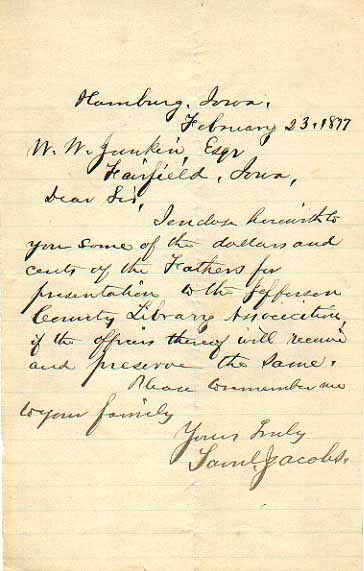 Hamburg, Iowa,
February 23, 1877
W. W. Junkin, Esqr
Fairfield, Iowa,
Dear Sir,
I enclose herewith to
you some of the dollars and
cents of the Fathers for
presentation to the Jefferson
County Library Association,
if the officers thereof will receive
and preserve the same.
Please to remember me
to your family
Yours Truly
Saml. Jacobs.